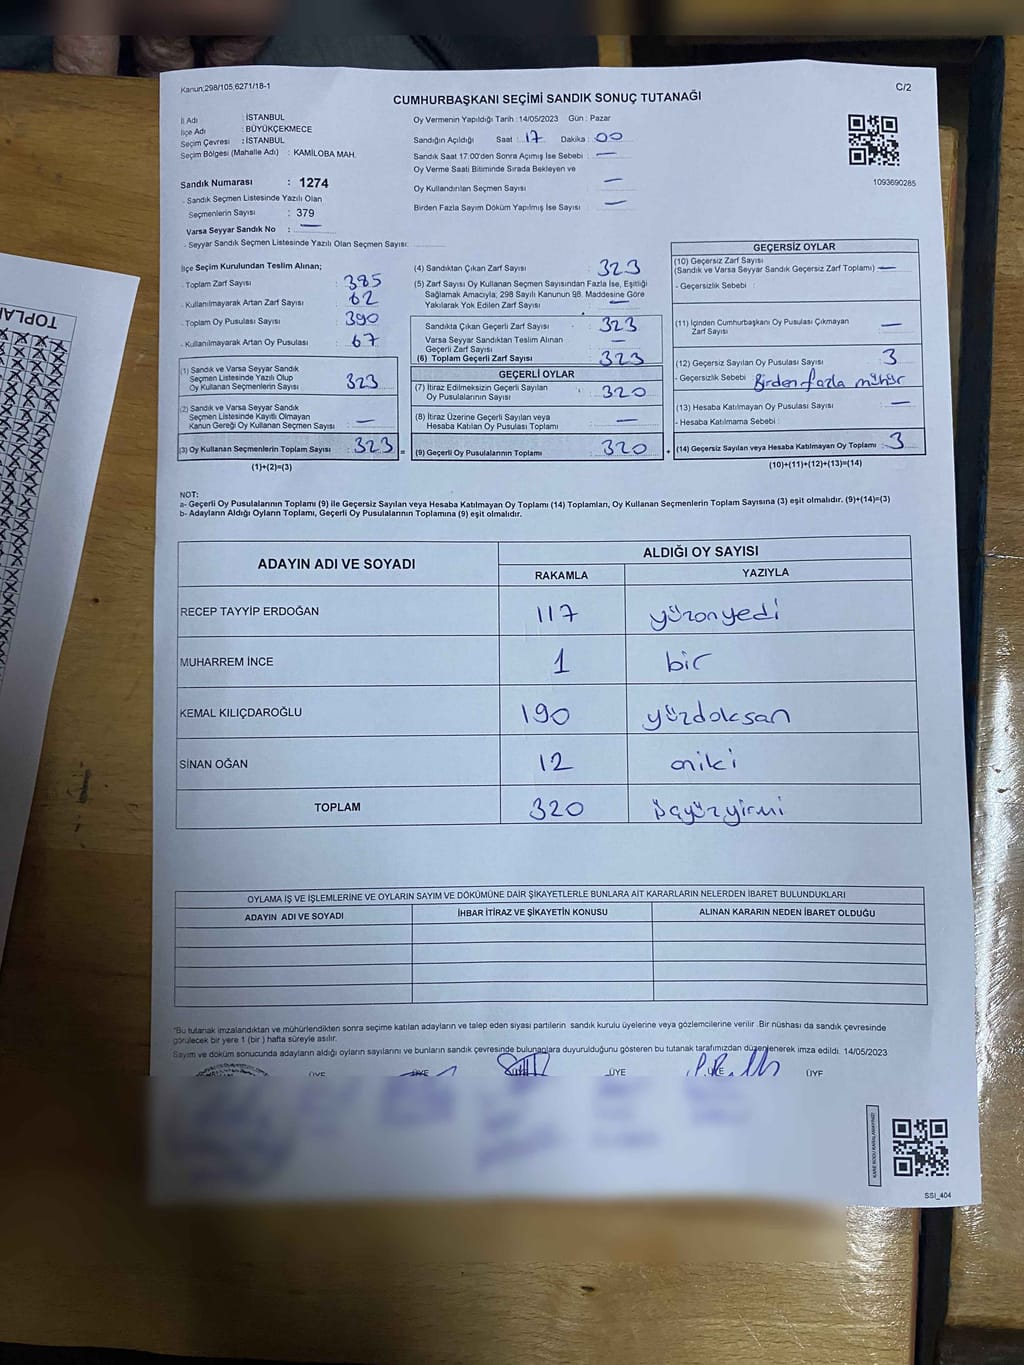 Kanun;298/105;6271/18-1
C/2
CUMHURBAŞKANI SEÇİMİ SANDIK SONUÇ TUTANAĞI
İl Adı : İSTANBUL
İlçe Adı : BÜYÜKÇEKMECE
Seçim Çevresi : İSTANBUL
Seçim Bölgesi (Mahalle Adı) : KAMİLOBA MAH.
Sandık Numarası : 1274
- Sandık Seçmen Listesinde Yazılı Olan
Seçmenlerin Sayısı : 379
Varsa Seyyar Sandık No : —
- Seyyar Sandık Seçmen Listesinde Yazılı Olan Seçmen Sayısı:
Oy Vermenin Yapıldığı Tarih : 14/05/2023 Gün : Pazar
Sandığın Açıldığı Saat : 17 Dakika : 00
Sandık Saat 17:00'den Sonra Açımış İse Sebebi : —
Oy Verme Saati Bitiminde Sırada Bekleyen ve
Oy Kullandırılan Seçmen Sayısı : —
Birden Fazla Sayım Döküm Yapılmış İse Sayısı : —
1093690285
İlçe Seçim Kurulundan Teslim Alınan;
- Toplam Zarf Sayısı : 385
- Kullanılmayarak Artan Zarf Sayısı : 62
- Toplam Oy Pusulası Sayısı : 390
- Kullanılmayarak Artan Oy Pusulası : 67
(1) Sandık ve Varsa Seyyar Sandık
Seçmen Listesinde Yazılı Olup
Oy Kullanan Seçmenlerin Sayısı : 323
(2) Sandık ve Varsa Seyyar Sandık
Seçmen Listesinde Kayıtlı Olmayan
Kanun Gereği Oy Kullanan Seçmen Sayısı : —
(3) Oy Kullanan Seçmenlerin Toplam Sayısı : 323 =
(1)+(2)=(3)
(4) Sandıktan Çıkan Zarf Sayısı : 323
(5) Zarf Sayısı Oy Kullanan Seçmen Sayısından Fazla İse, Eşitliği
Sağlamak Amacıyla; 298 Sayılı Kanunun 98. Maddesine Göre
Yakılarak Yok Edilen Zarf Sayısı : —
Sandıkta Çıkan Geçerli Zarf Sayısı : 323
Varsa Seyyar Sandıktan Teslim Alınan
Geçerli Zarf Sayısı : —
(6) Toplam Geçerli Zarf Sayısı : 323
GEÇERLİ OYLAR
(7) İtiraz Edilmeksizin Geçerli Sayılan
Oy Pusulalarının Sayısı : 320
(8) İtiraz Üzerine Geçerli Sayılan veya
Hesaba Katılan Oy Pusulaları Toplamı : —
(9) Geçerli Oy Pusulalarının Toplamı : 320 +
GEÇERSİZ OYLAR
(10) Geçersiz Zarf Sayısı
(Sandık ve Varsa Seyyar Sandık Geçersiz Zarf Toplamı) —
- Geçersizlik Sebebi :
(11) İçinden Cumhurbaşkanı Oy Pusulası Çıkmayan
Zarf Sayısı : —
(12) Geçersiz Sayılan Oy Pusulası Sayısı : 3
- Geçersizlik Sebebi : Birden fazla mühür
(13) Hesaba Katılmayan Oy Pusulası Sayısı : —
- Hesaba Katılmama Sebebi :
(14) Geçersiz Sayılan veya Hesaba Katılmayan Oy Toplamı : 3
(10)+(11)+(12)+(13)=(14)
NOT:
a- Geçerli Oy Pusulalarının Toplamı (9) ile Geçersiz Sayılan veya Hesaba Katılmayan Oy Toplamı (14) Toplamları, Oy Kullanan Seçmenlerin Toplam Sayısına (3) eşit olmalıdır. (9)+(14)=(3)
b- Adayların Aldığı Oyların Toplamı, Geçerli Oy Pusulalarının Toplamına (9) eşit olmalıdır.
ADAYIN ADI VE SOYADI
ALDIĞI OY SAYISI
RAKAMLA YAZIYLA
RECEP TAYYİP ERDOĞAN 117 yüzonyedi
MUHARREM İNCE 1 bir
KEMAL KILIÇDAROĞLU 190 yüzdoksan
SİNAN OĞAN 12 oniki
TOPLAM 320 üçyüzyirmi
OYLAMA İŞ VE İŞLEMLERİNE VE OYLARIN SAYIM VE DÖKÜMÜNE DAİR ŞİKAYETLERLE BUNLARA AİT KARARLARIN NELERDEN İBARET BULUNDUKLARI
ADAYIN ADI VE SOYADI İHBAR İTİRAZ VE ŞİKAYETİN KONUSU ALINAN KARARIN NEDEN İBARET OLDUĞU
*Bu tutanak imzalandıktan ve mühürlendikten sonra seçime katılan adayların ve talep eden siyasi partilerin sandık kurulu üyelerine veya gözlemcilerine verilir .Bir nüshası da sandık çevresinde
görülecek bir yere 1 (bir ) hafta süreyle asılır.
Sayım ve döküm sonucunda adayların aldığı oyların sayılarını ve bunların sandık çevresinde bulunanlara duyurulduğunu gösteren bu tutanak tarafımızdan düzenlenerek imza edildi. 14/05/2023
ÜYE ÜYE ÜYE ÜYE ÜYE
KARE KODU KARALAMAYINIZ!
SSI_404
TOPLA